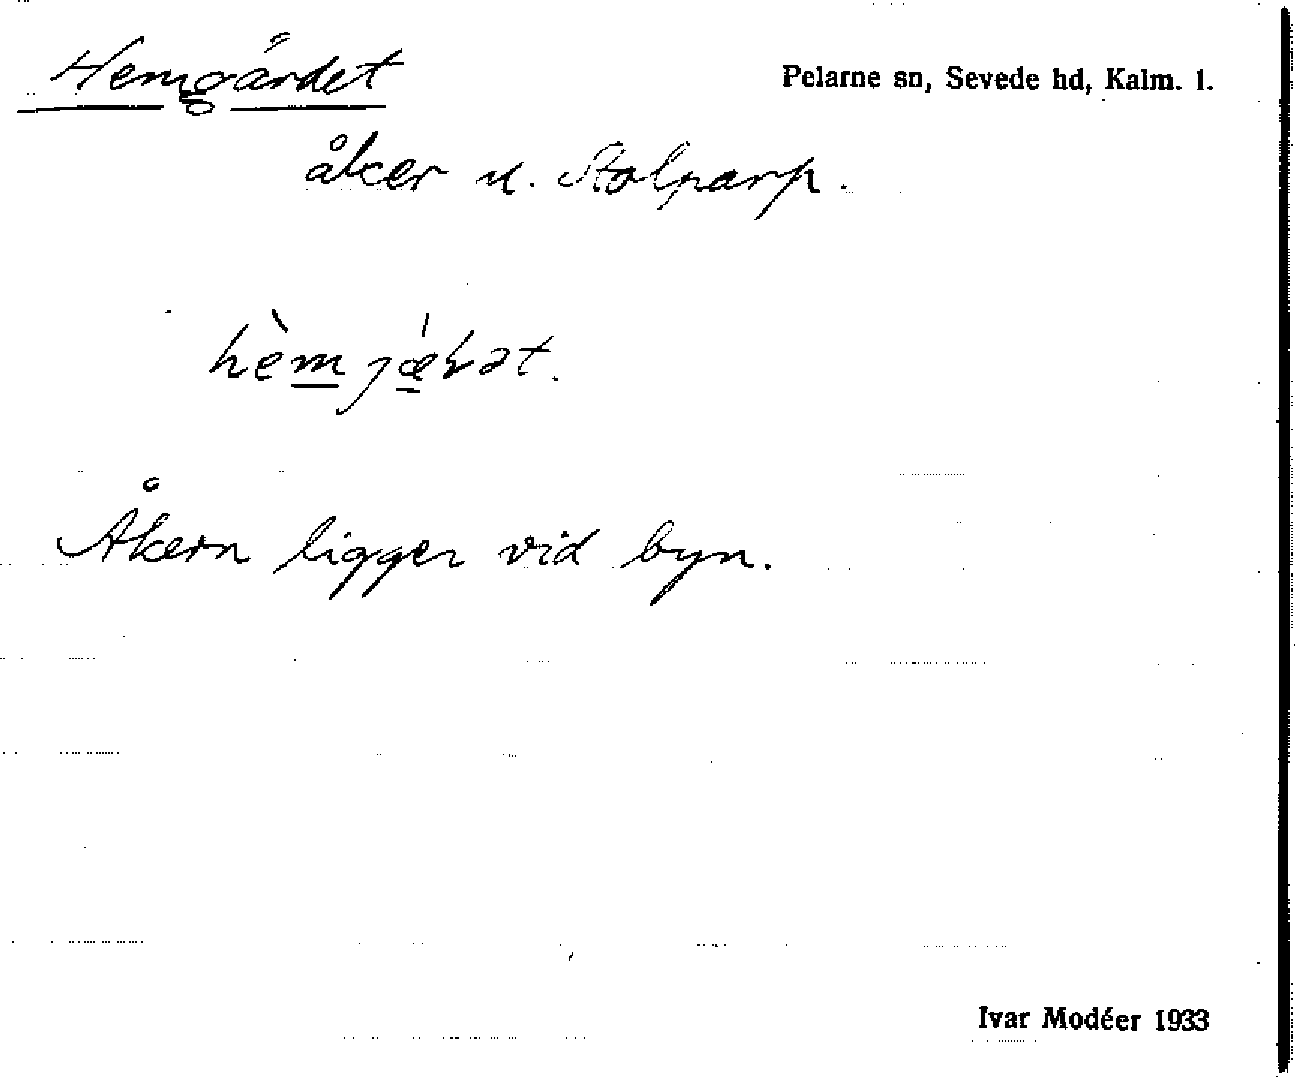 Hemgärdet
Pelarne sn, Sevede hd, Kalm. l.
åker u. Stolparp.
Åkern ligger vid byn.
Ivar Modéer 1933